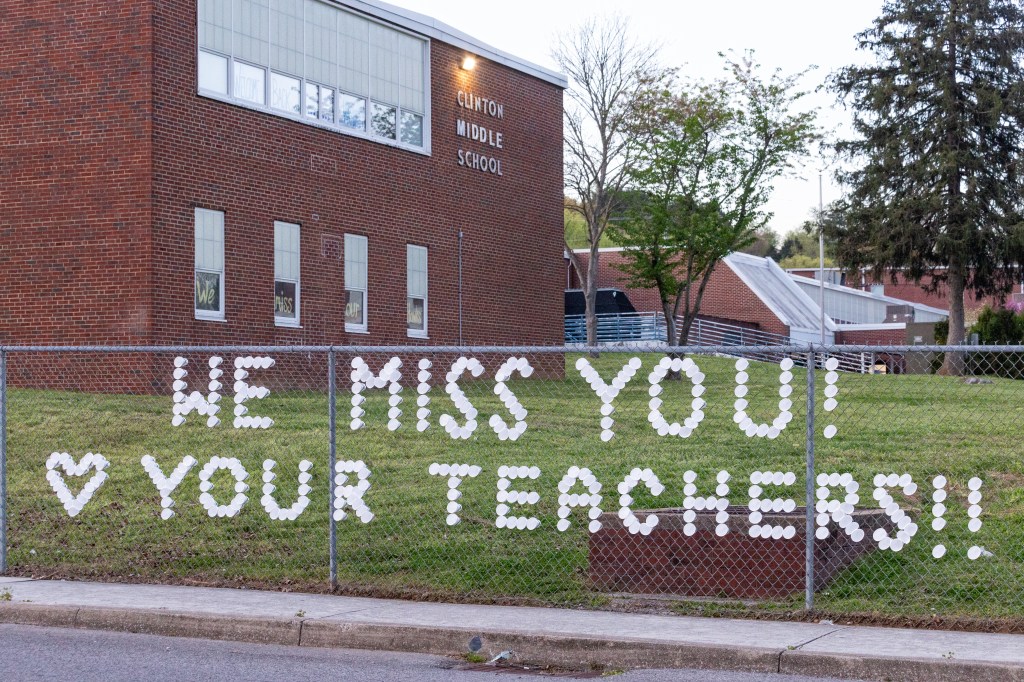 CLINTON
MIDDLE
SCHOOL
We
miss
our
WE MISS YOU!
♡ YOUR TEACHERS!!